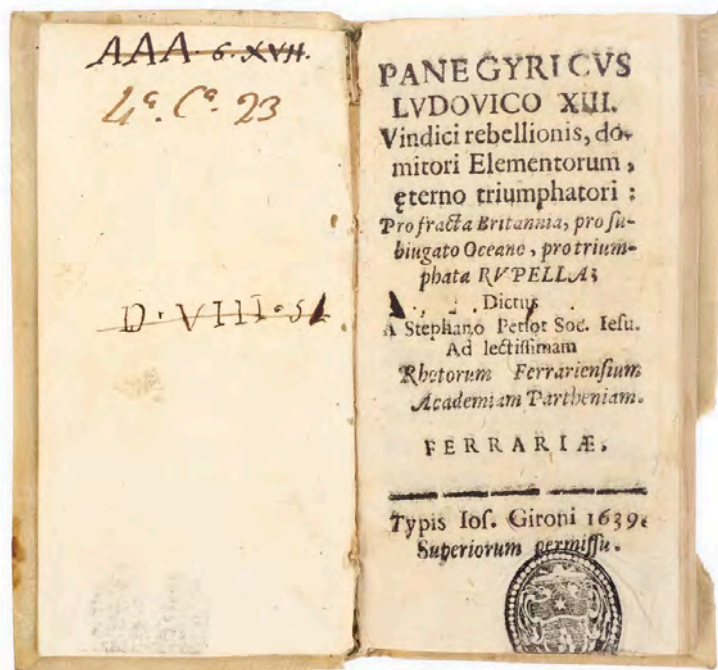 AAA. 6. XVII.
4ª. Cª. 23
D. VIII. 5
PANEGYRICVS
LVDOVICO XIII.
Vindici rebellionis, do-
mitori Elementorum,
ęterno triumphatori:
Pro fracta Britannia, pro su-
biugato Oceano, pro trium-
phata RVPELLA;
Dictus
A Stephano Petiot Soc. Iesu.
Ad lectissimam
Rhetorum Ferrariensium
Academiam Partheniam.
FERRARIÆ,
Typis Ios. Gironi 1639.
Superiorum permissu.